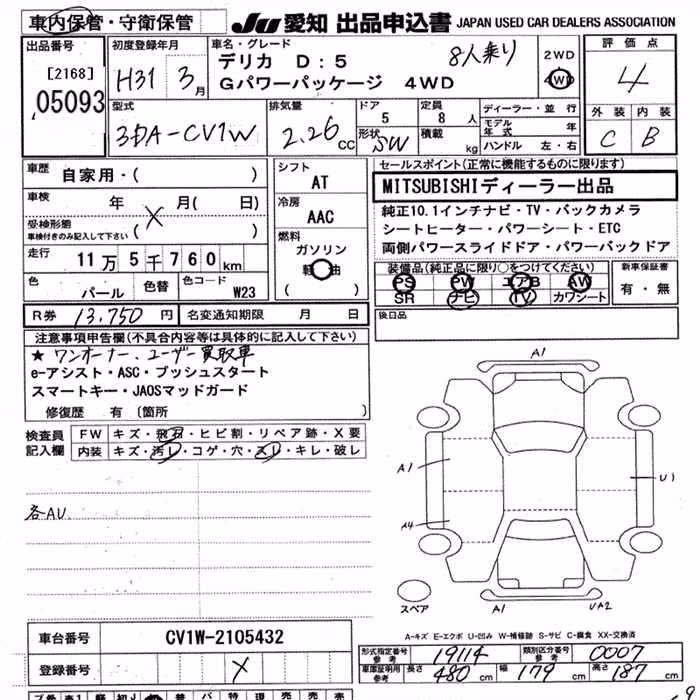 車内保管・守衛保管
JU 愛知 出品申込書 JAPAN USED CAR DEALERS ASSOCIATION
出品番号
[2168]
05093
初度登録年月
H31 3月
車名・グレード
デリカ D:5 8人乗り
Gパワーパッケージ 4WD
2WD
4WD
評価点
4
外装 内装
C B
型式
3DA-CV1W
排気量
2.26 CC
ドア
5
形状 SW
定員
8 人
積載 kg
ディーラー・並行
モデル年式 年
ハンドル 左・右
車歴 自家用・( )
車検 年 月( 日)
受検形態
車検付きのみ記入して下さい ( )
走行 11万5千760km
色 パール 色替 色コード W23
シフト
AT
冷房
AAC
燃料
ガソリン
軽油
( )
セールスポイント(正常に機能するものに限ります)
MITSUBISHIディーラー出品
純正10.1インチナビ・TV・バックカメラ
シートヒーター・パワーシート・ETC
両側パワースライドドア・パワーバックドア
装備品(純正品に限り○をつけてください)
PS PW エアB AW
SR ナビ TV カワシート
新車保証書
有・無
後日品
R券 13,750 円 名変通知期限 月 日
注意事項申告欄(不具合内容等は具体的に記入して下さい)
★ワンオーナー、ユーザー買取車
e-アシスト・ASC・プッシュスタート
スマートキー・JAOSマッドガード
修復歴 有 〔箇所 〕
検査員記入欄
FW キズ・飛石・ヒビ割・リペア跡・X要
内装 キズ・汚レ・コゲ・穴・スレ・キレ・破レ
各AU
A1
A1
U1
A4
スペア
A1
UA2
A-キズ E-エクボ U-凹み W-補修跡 S-サビ C-腐食 XX-交換済
車台番号 CV1W-2105432
登録番号
形式指定番号 参考 19114
類別区分番号 参考 0007
車庫証明用 参考 長さ 480 cm 幅 179 cm 高さ 187 cm